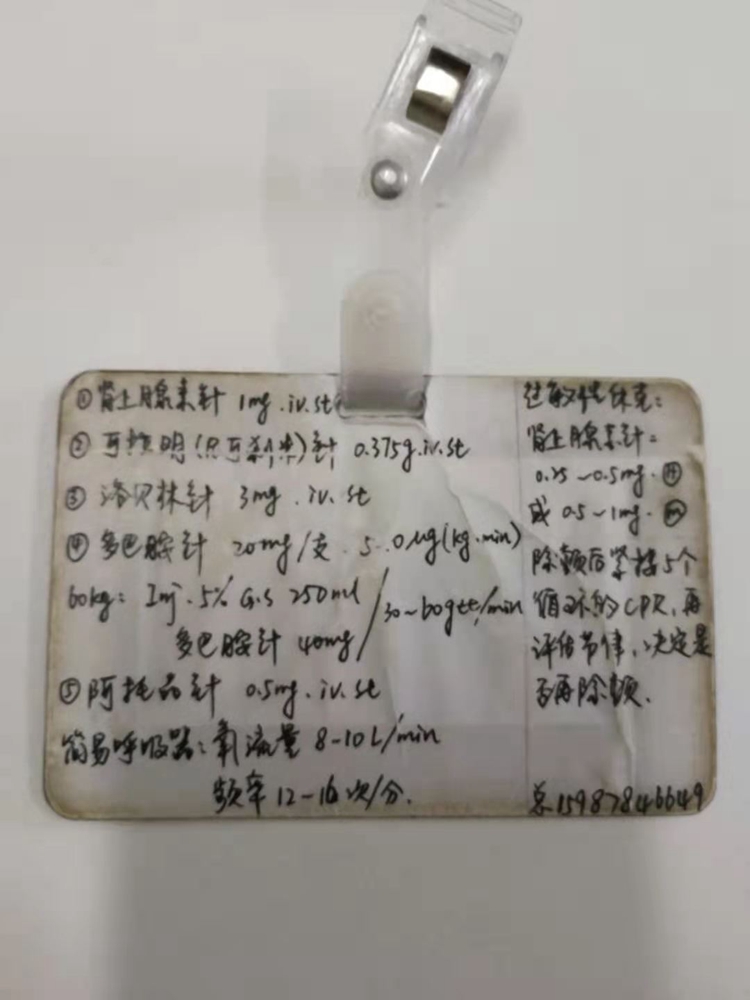 ①肾上腺素针 1mg.iv.st
②可拉明(尼可刹米)针 0.375g.iv.st
③洛贝林针 3mg.iv.st
④多巴胺针 20mg/支. 5.0ug(kg.min)
60kg: Inj.5% G.S 250ml
多巴胺针 40mg / 30~60gtt/min
⑤阿托品针 0.5mg.iv.st
简易呼吸器:氧流量 8-10L/min
频率12-16次/分.
过敏性休克:
肾上腺素针:
0.25~0.5mg.
或 0.5~1mg.
除颤后紧接5个
循环的CPR,再
评估节律,决定是
否再除颤.
总15987846649